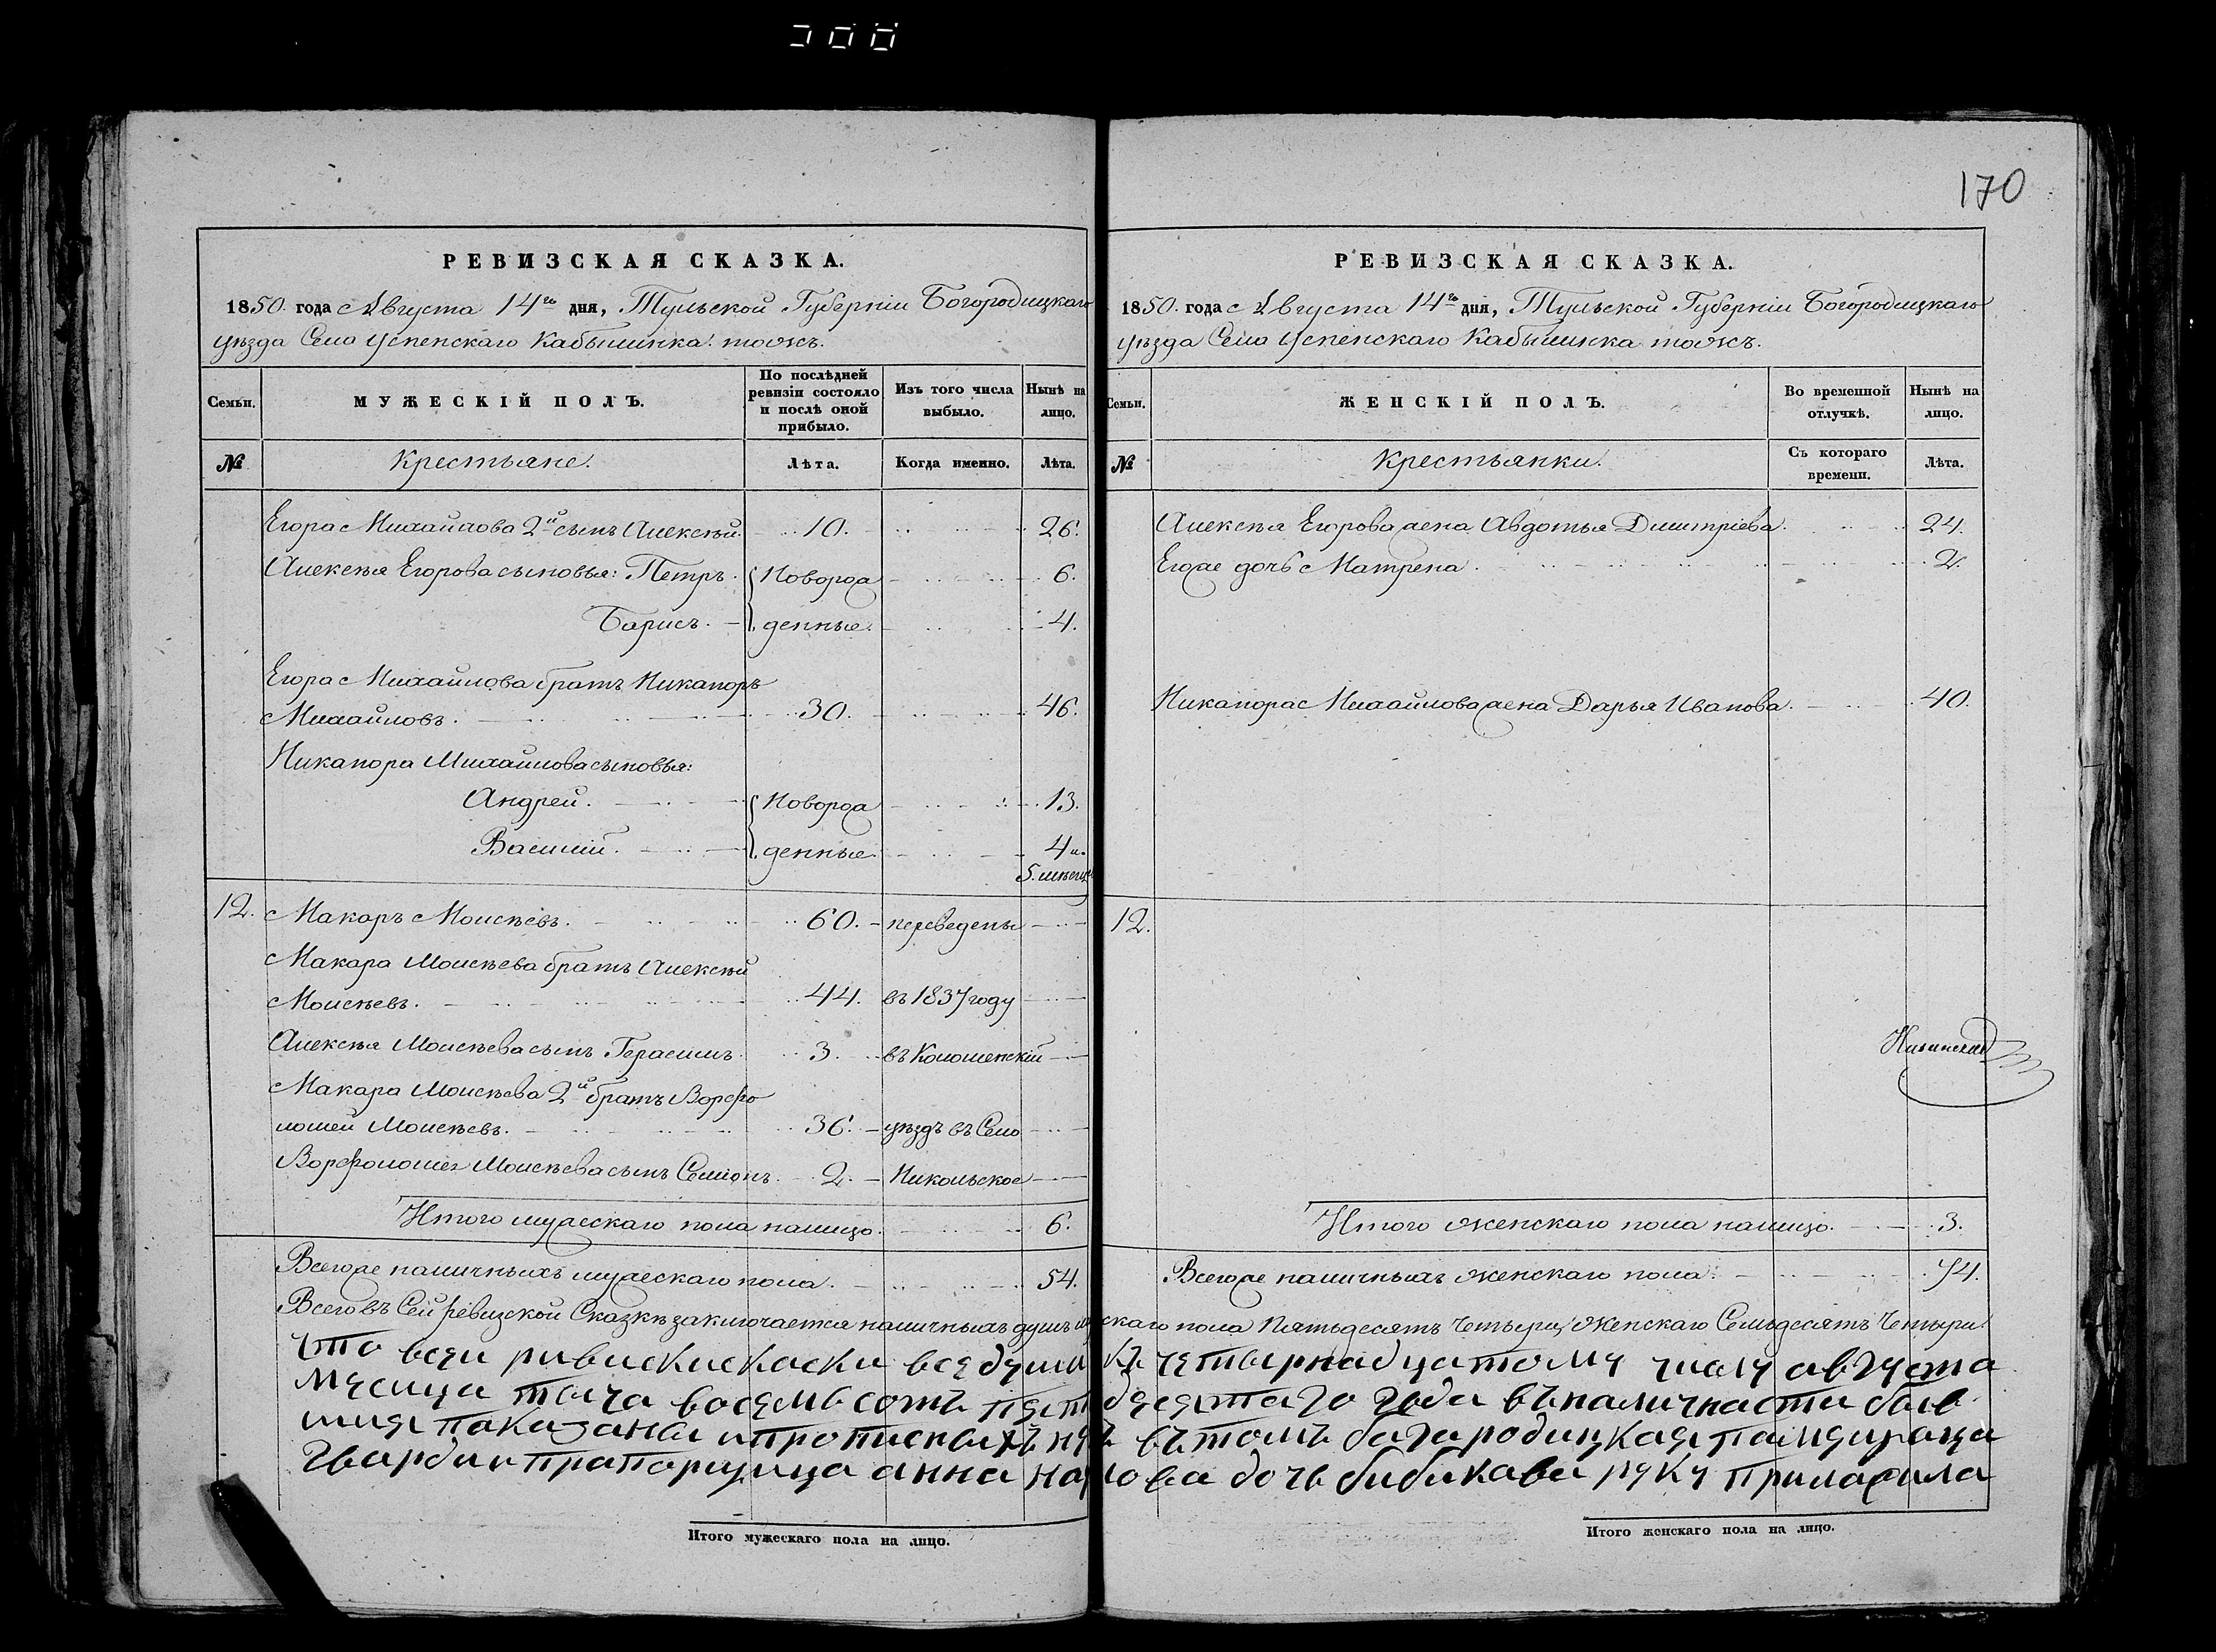 170
РЕВИЗСКАЯ СКАЗКА.
1850. года Августа 14го дня, Тульской Губерніи Богородицкаго
уѣзда Село Успенскаго Кабылинка тожъ.
Семьи.
МУЖЕСКІЙ ПОЛЪ.
По послѣдней ревизіи состояло и послѣ оной прибыло.
Изъ того числа выбыло.
Нынѣ на лицо.
№
Крестьяне.
Лѣта.
Когда именно.
Лѣта.
Егора Михайлова 2й сынъ Алексѣй. 10. 26.
Алексѣя Егорова сыновья: Петръ. Новорож 6.
Барисъ. денные. 4.
Егора Михайлова братъ Никаноръ
Михайловъ. 30. 46.
Никанора Михайлова сыновья:
Андрей. Новорож 13.
Василій. денные. 4 и.
5. мѣсяц
12. Макаръ Моисѣевъ. 60. переведены
Макара Моисѣева братъ Алексѣй
Моисѣевъ. 44. въ 1837 году
Алексѣя Моисѣева сынъ Герасимъ. 3. въ Коломенскій
Макара Моисѣева 2й братъ Ворфо
ломей Моисѣевъ. 36. уѣздъ въ Село
Ворфоломея Моисѣева сынъ Семіонъ. 2. Никольское
Итого мужескаго пола налицо. 6.
Всегоже наличныхъ мужескаго пола. 54.
РЕВИЗСКАЯ СКАЗКА.
1850. года Августа 14го дня, Тульской Губерніи Богородицкаго
уѣзда Село Успенскаго Кабылинка тожъ.
Семьи.
ЖЕНСКІЙ ПОЛЪ.
Во временной отлучкѣ.
Нынѣ на лицо.
№
Крестьянки.
Съ котораго времени.
Лѣта.
Алексѣя Егорова жена Авдотья Дмитріева. 24.
Егоже дочь Матрена. 2.
Никанора Михайлова жена Дарья Иванова. 40.
12.
Итого женскаго пола налицо. 3.
Всегоже наличныхъ женскаго пола. 74.
Всего въ Сей ревизской Сказкѣ заключается наличныхъ душъ му скаго пола Пятьдесятъ Четыри, Женскаго Семьдесятъ Четыри.
что всеи ривискискаски всядуши къ четвернадцатому числу августа
мясица тысча восемьсотъ пят десятаго года въналичности быв
шия паказаны ипрописныхъ нят вътомъ багародицкая памящица
гвардии прапорщица анна на лова дочь бибикава руку приложила
Итого мужескаго пола на лицо.
Итого женскаго пола на лицо.